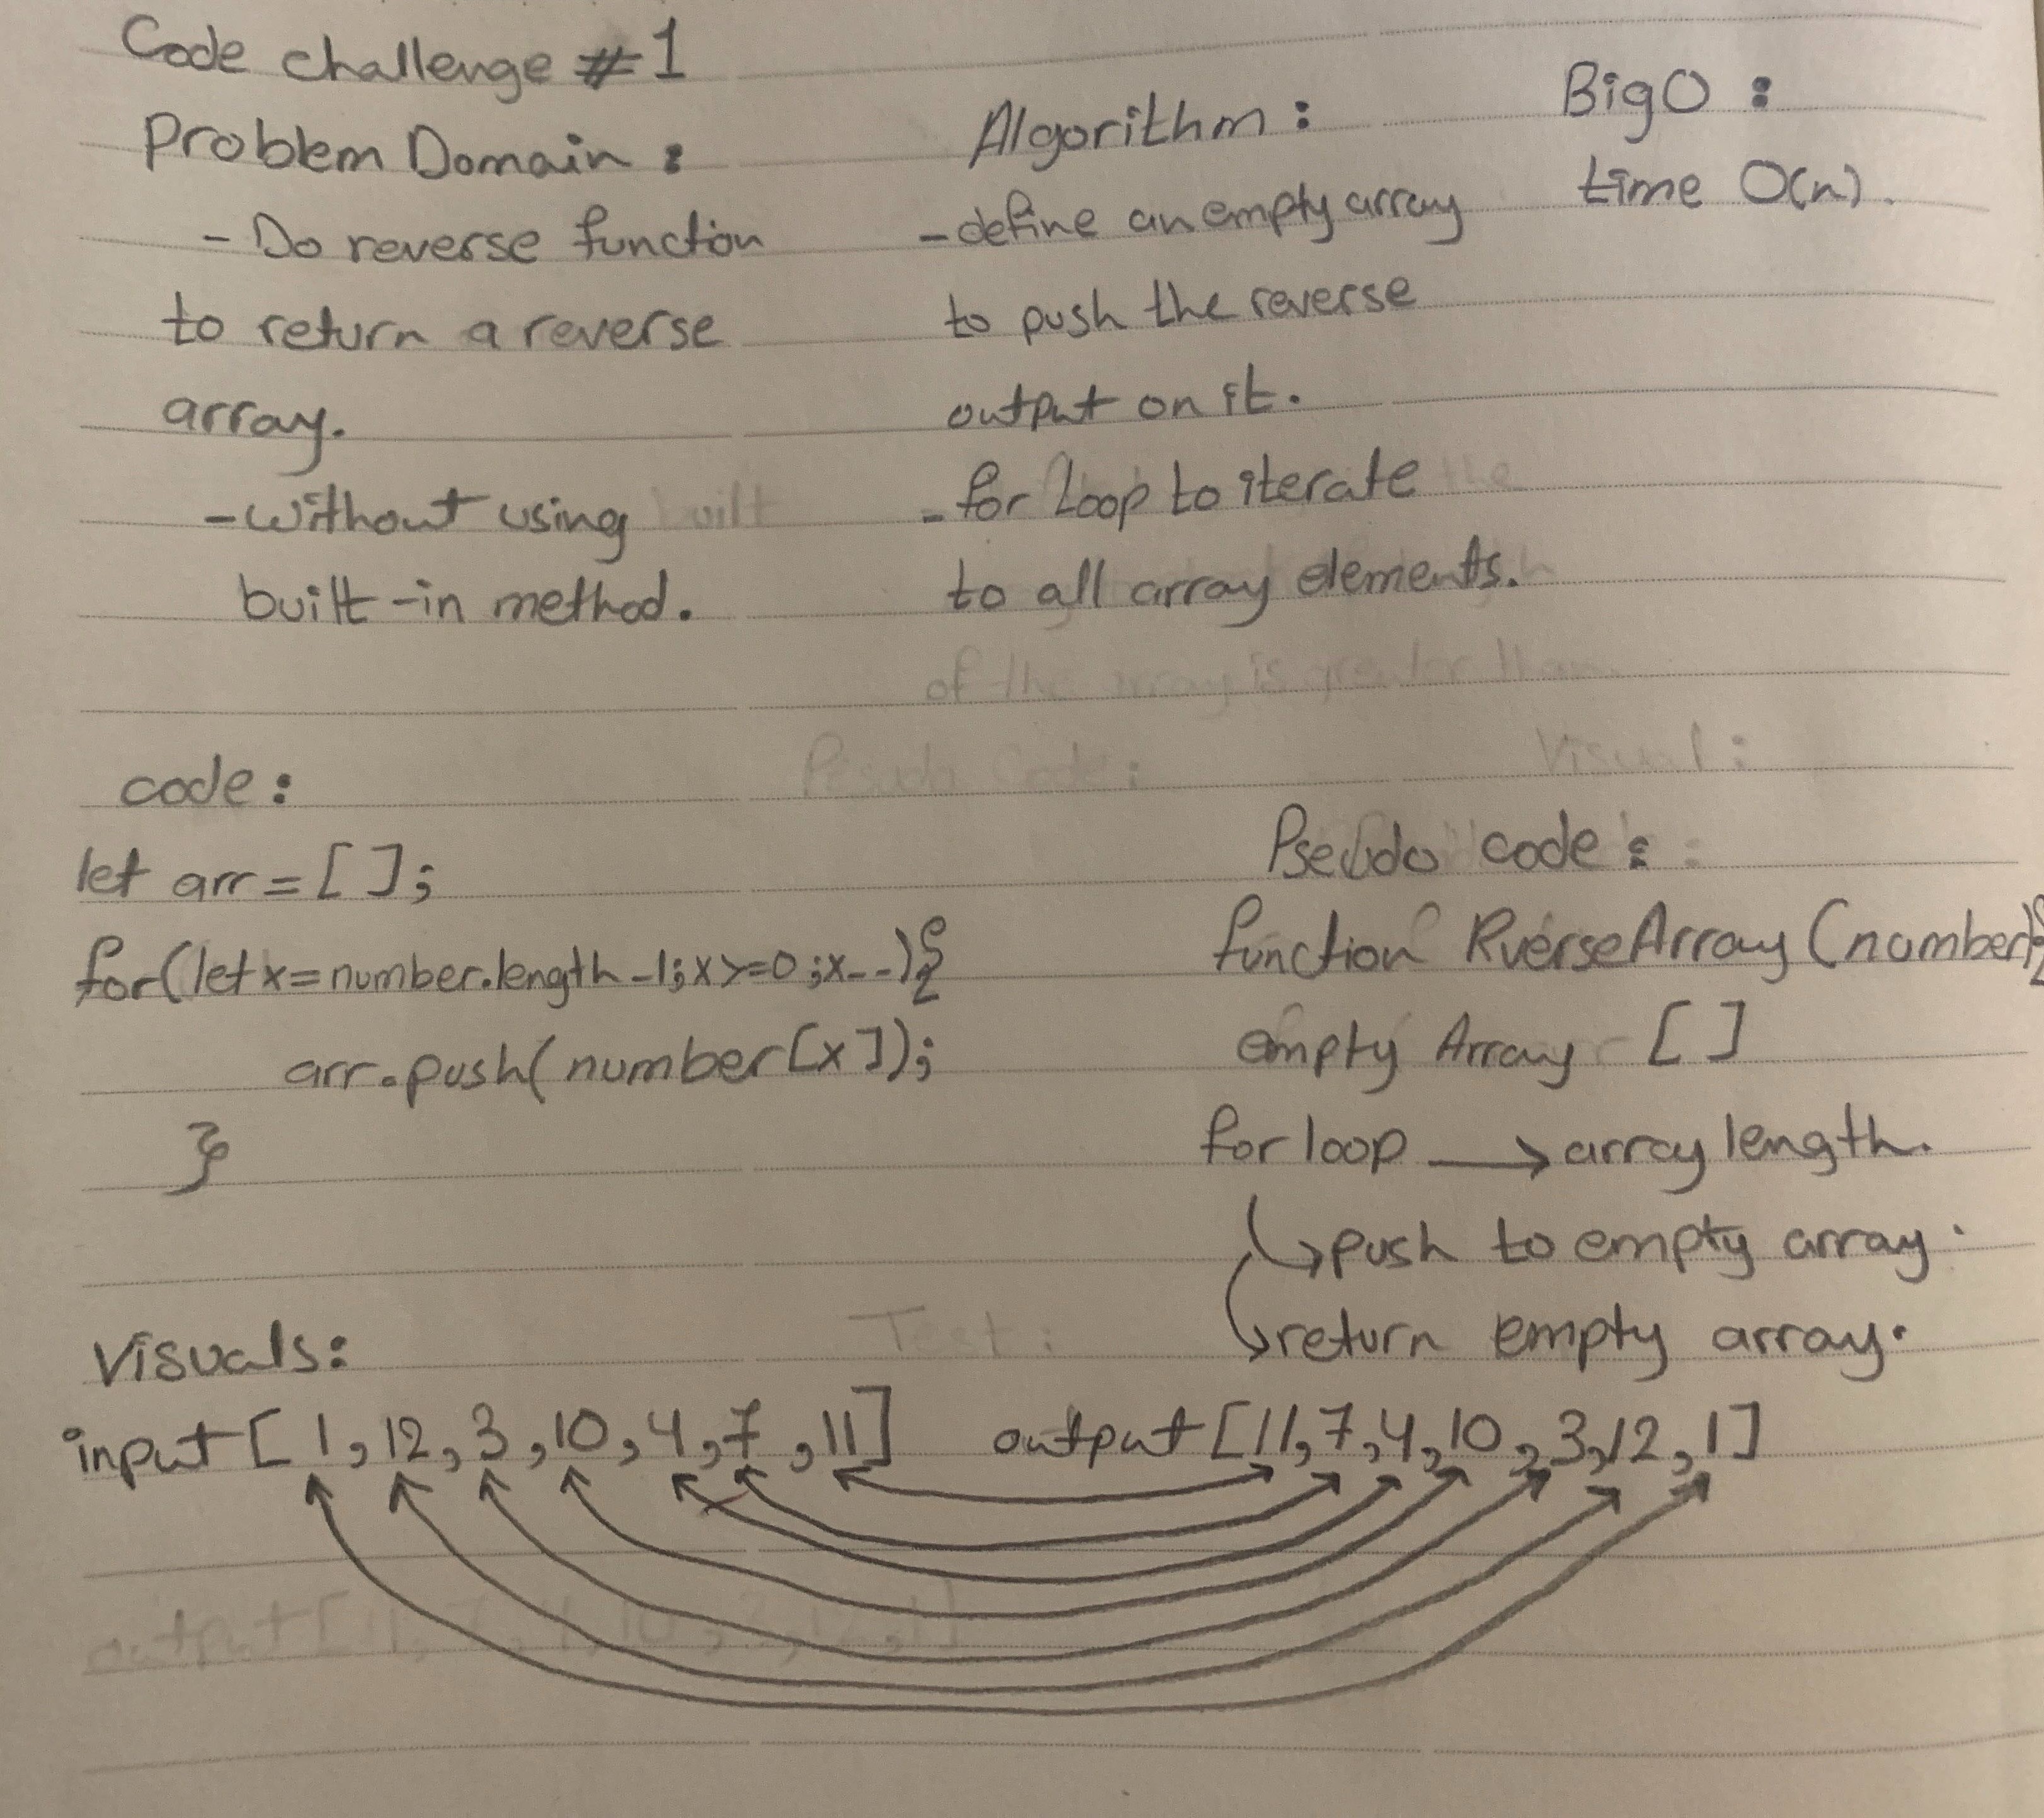 Code challenge #1
Problem Domain :
- Do reverse function
to return a reverse
array.
- without using
built-in method.
Algorithm :
- define an empty array
to push the reverse
output on it.
- for loop to iterate
to all array elements.
BigO :
time O(n).
code :
let arr = [ ];
for(let x=number.length-1;x>=0;x--){
arr.push(number[x]);
}
Pseudo code :
function RverseArray (number){
empty Array [ ]
for loop → array length.
↳ push to empty array.
↳ return empty array.
Visuals:
input [ 1, 12, 3, 10, 4, 7, 11]
output [11, 7, 4, 10, 3, 12, 1]
built
the
of the array is greater than
Pesudo Code:
Visual :
Test :
output [11, 7, 4, 10, 3, 12, 1]